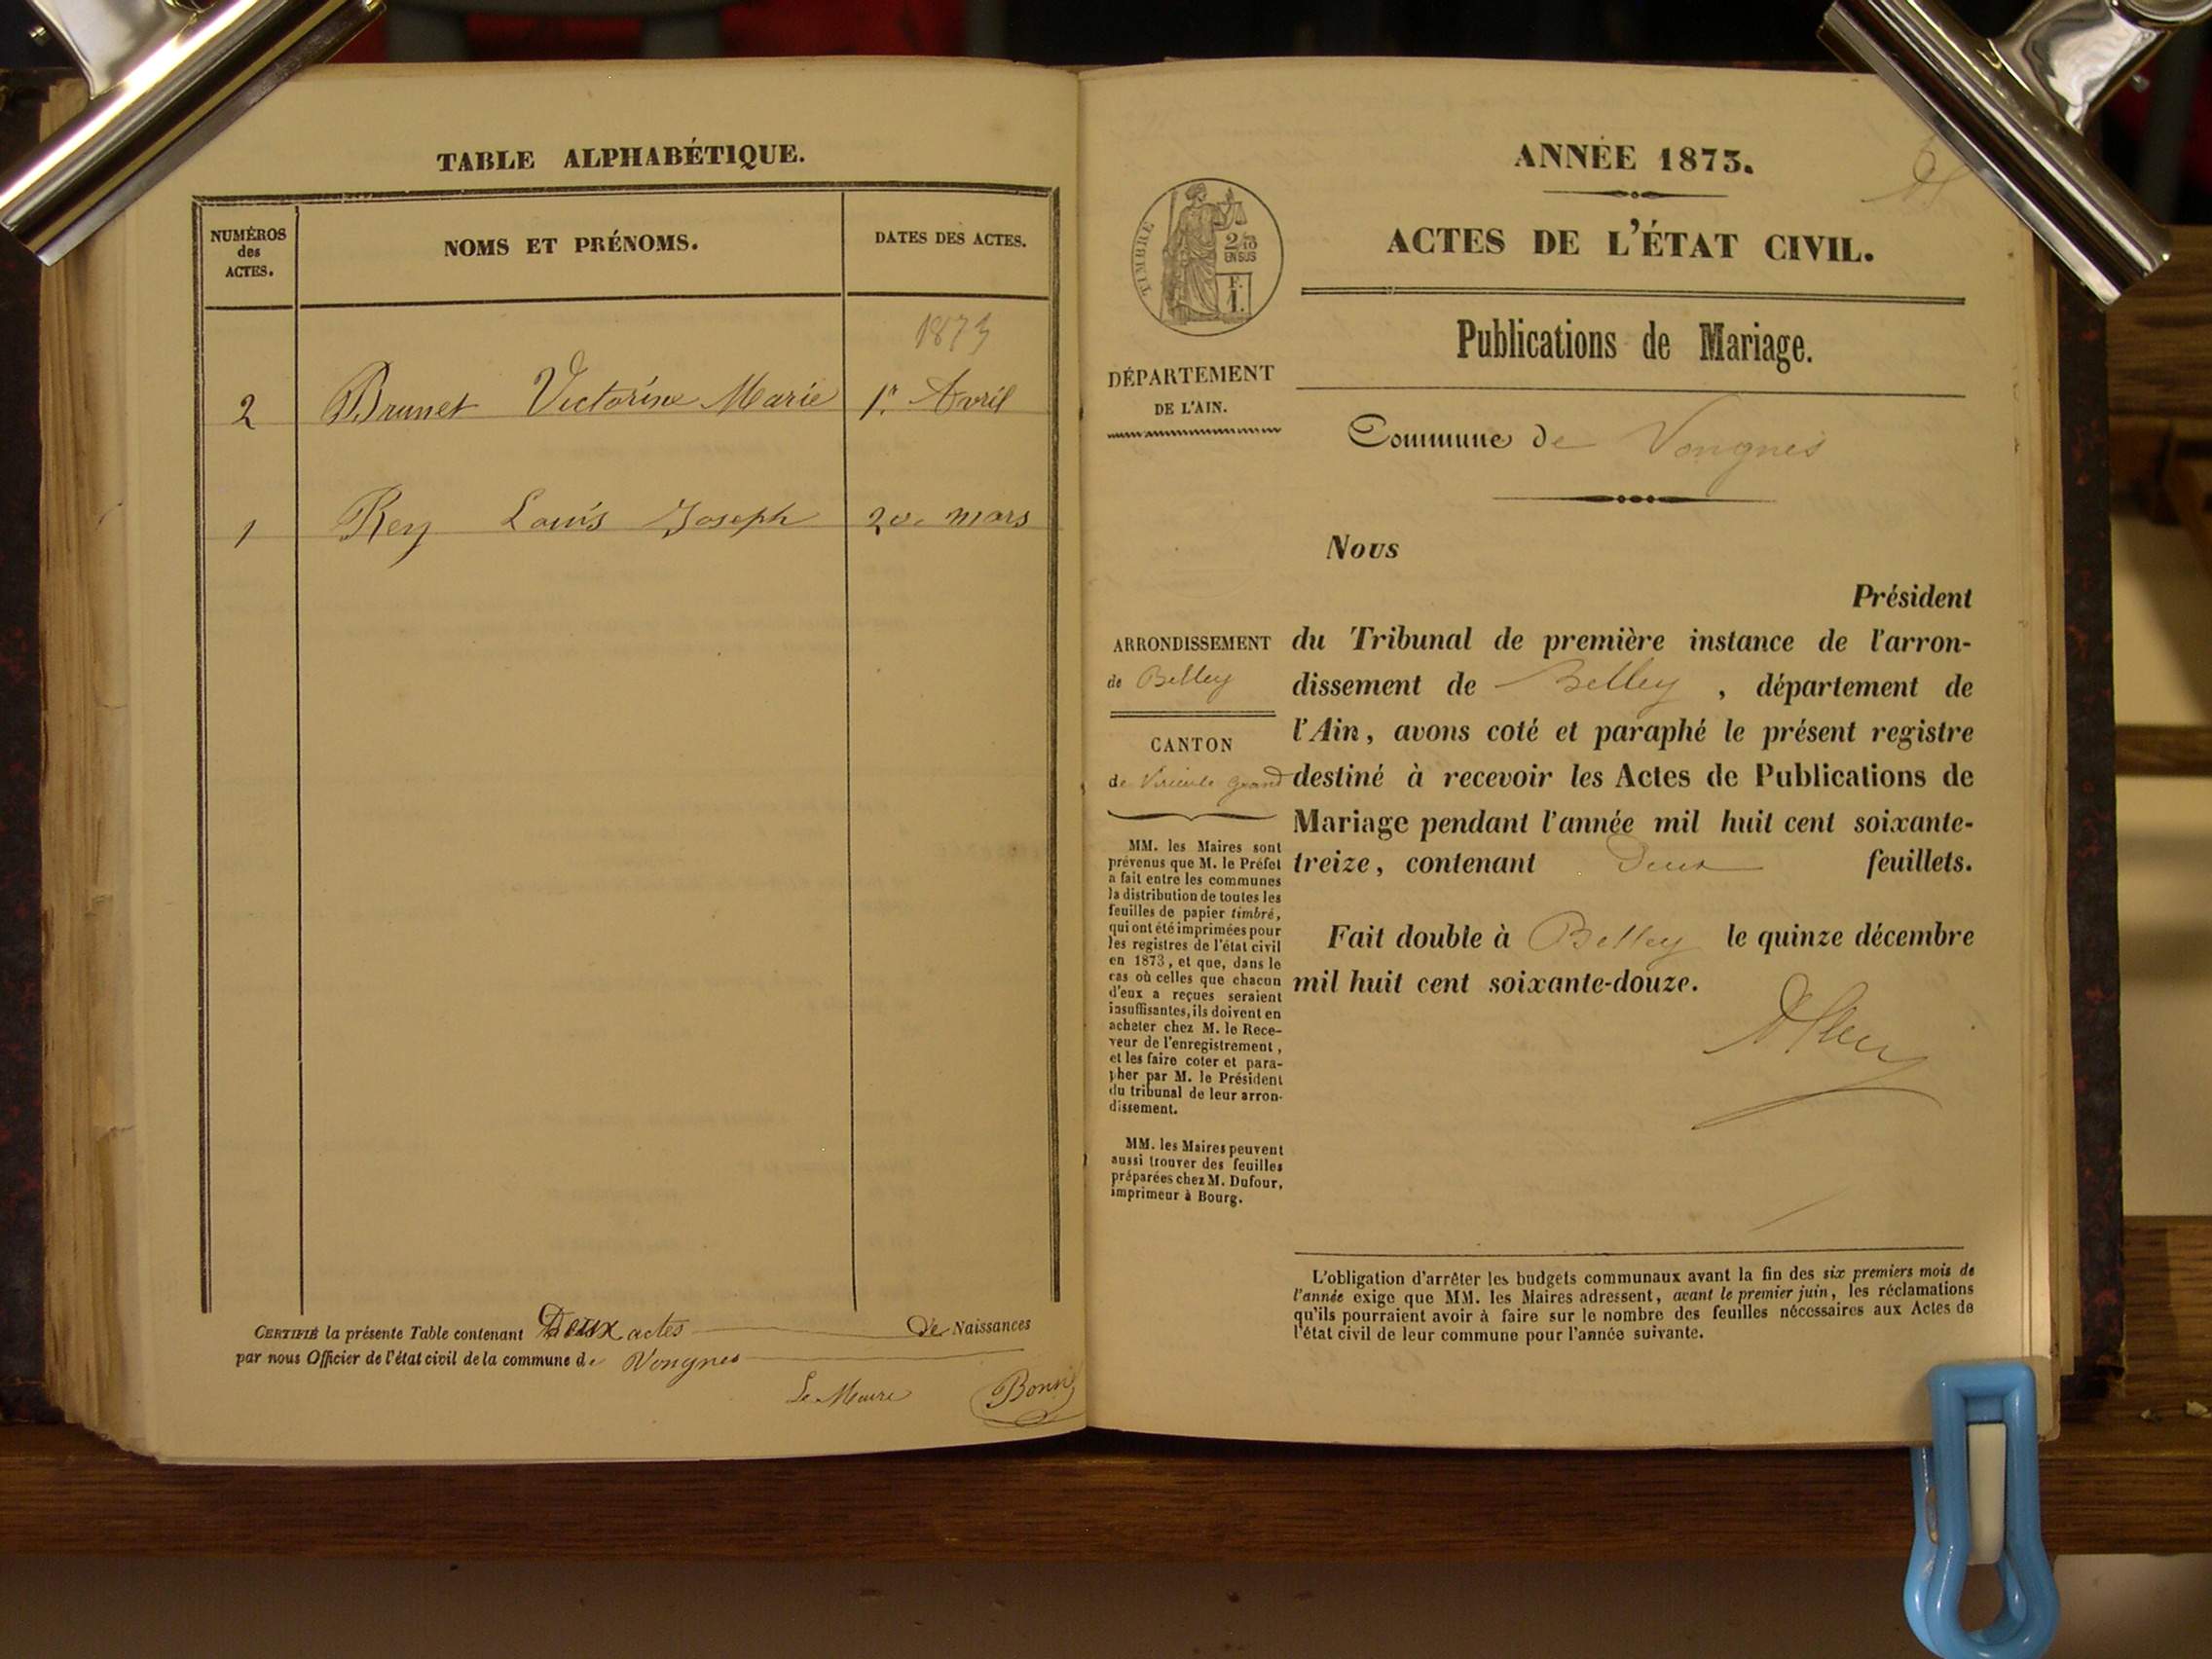 TABLE ALPHABÉTIQUE.
NUMÉROS
des
ACTES.
NOMS ET PRÉNOMS.
DATES DES ACTES.
1873
2 Brunet Victorine Marie 1er Avril
1 Rey Louis Joseph 20. mars
CERTIFIÉ la présente Table contenant Deux actes de Naissances
par nous Officier de l'état civil de la commune de Vongnes
Le Maire
ANNÉE 1873.
ACTES DE L'ÉTAT CIVIL.
TIMBRE
2/10
EN SUS
F.
1.
Publications de Mariage.
DÉPARTEMENT
DE L'AIN.
Commune de Vongnes
Nous
Président
du Tribunal de première instance de l'arron-
dissement de Belley, département de
l'Ain, avons coté et paraphé le présent registre
destiné à recevoir les Actes de Publications de
Mariage pendant l'année mil huit cent soixante-
treize, contenant Deux feuillets.
Fait double à Belley le quinze décembre
mil huit cent soixante-douze.
ARRONDISSEMENT
de Belley
CANTON
de Virieu le grand
MM. les Maires sont
prévenus que M. le Préfet
a fait entre les communes
la distribution de toutes les
feuilles de papier timbré,
qui ont été imprimées pour
les registres de l'état civil
en 1873, et que, dans le
cas où celles que chacun
d'eux a reçues seraient
insuffisantes, ils doivent en
acheter chez M. le Rece-
veur de l'enregistrement,
et les faire coter et para-
pher par M. le Président
du tribunal de leur arron-
dissement.
MM. les Maires peuvent
aussi trouver des feuilles
préparées chez M. Dufour,
imprimeur à Bourg.
L'obligation d'arrêter les budgets communaux avant la fin des six premiers mois de
l'année exige que MM. les Maires adressent, avant le premier juin, les réclamations
qu'ils pourraient avoir à faire sur le nombre des feuilles nécessaires aux Actes de
l'état civil de leur commune pour l'année suivante.